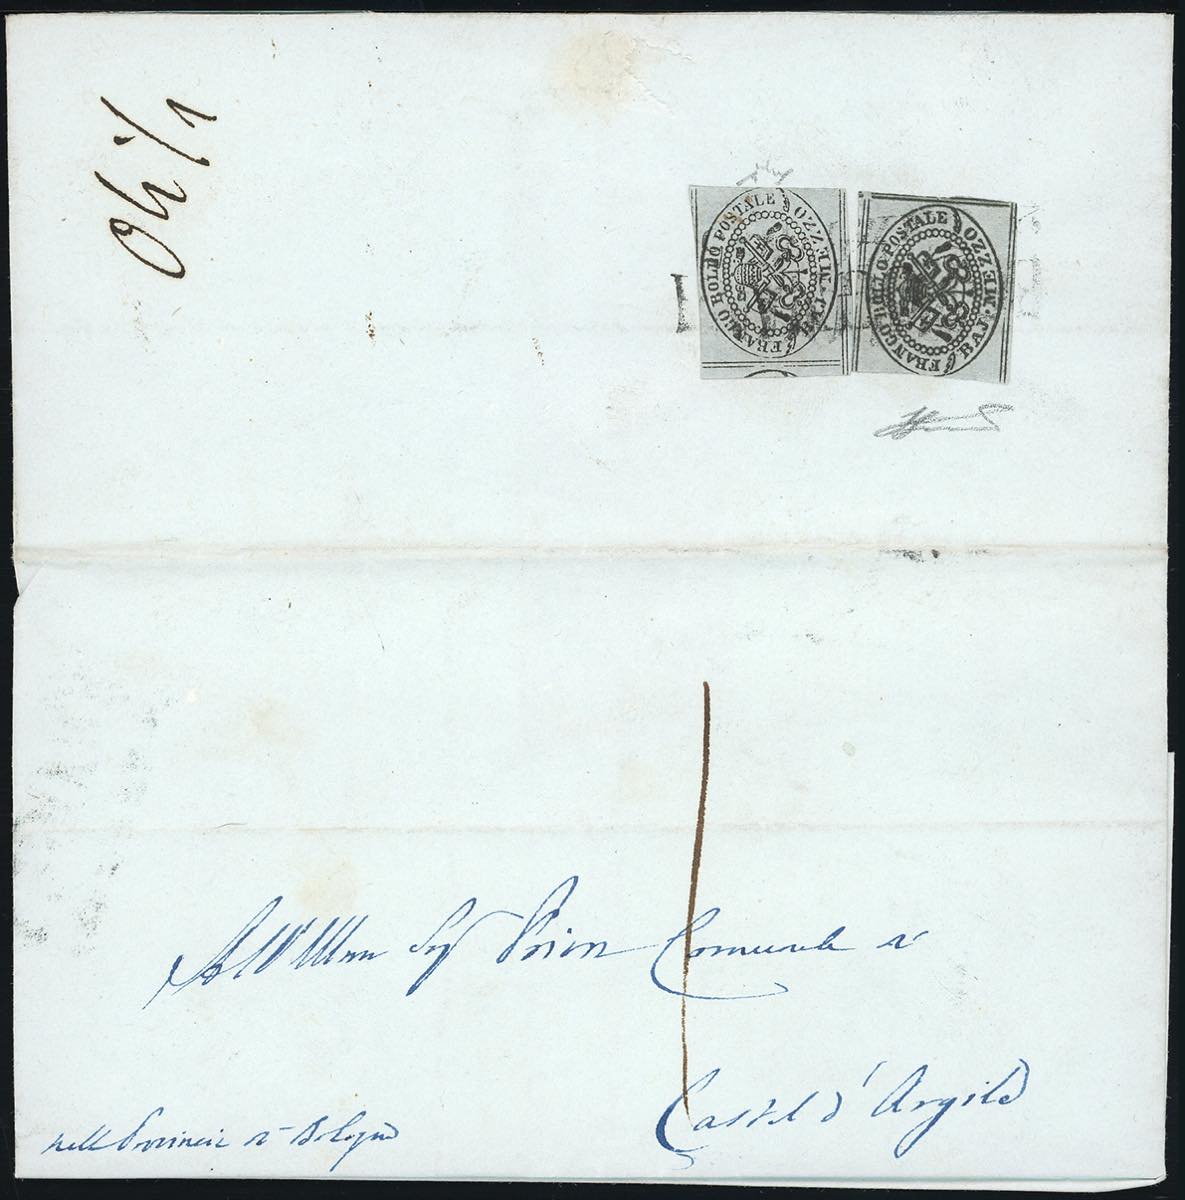 FRANCO BOLLO POSTALE
MEZZO BAJ
FRANCO BOLLO POSTALE
MEZZO BAJ
1
All'Illmo Sigr Prior Comunale di
Castel d'Argile
nella Provincia di Bologna